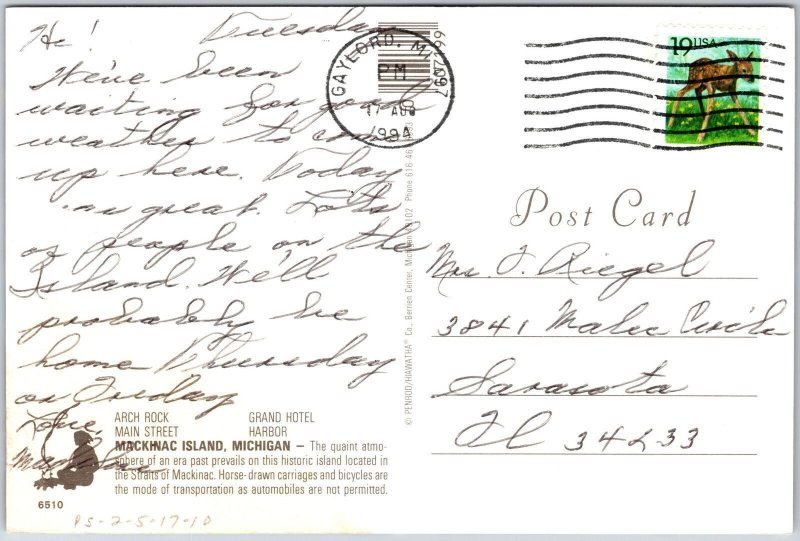 Hi! Tuesday
We've been
waiting for good
weather to come
up here. Today
was great. Lots
of people on the
Island. We'll
probably be
home Thursday
or Friday
Love,
ARCH ROCK GRAND HOTEL
MAIN STREET HARBOR
MACKINAC ISLAND, MICHIGAN – The quaint atmo-
sphere of an era past prevails on this historic island located in
the Straits of Mackinac. Horse-drawn carriages and bicycles are
the mode of transportation as automobiles are not permitted.
6510
PS-2-5-17-10
© PENROD/HIAWATHA® Co., Berrien Center, Michigan 49102 Phone 616-46
GAYLORD, MI 497
PM
17 AUG
1994
19 USA
Post Card
Mrs. J. Riegel
3841 Circle
Sarasota
Fl 34233